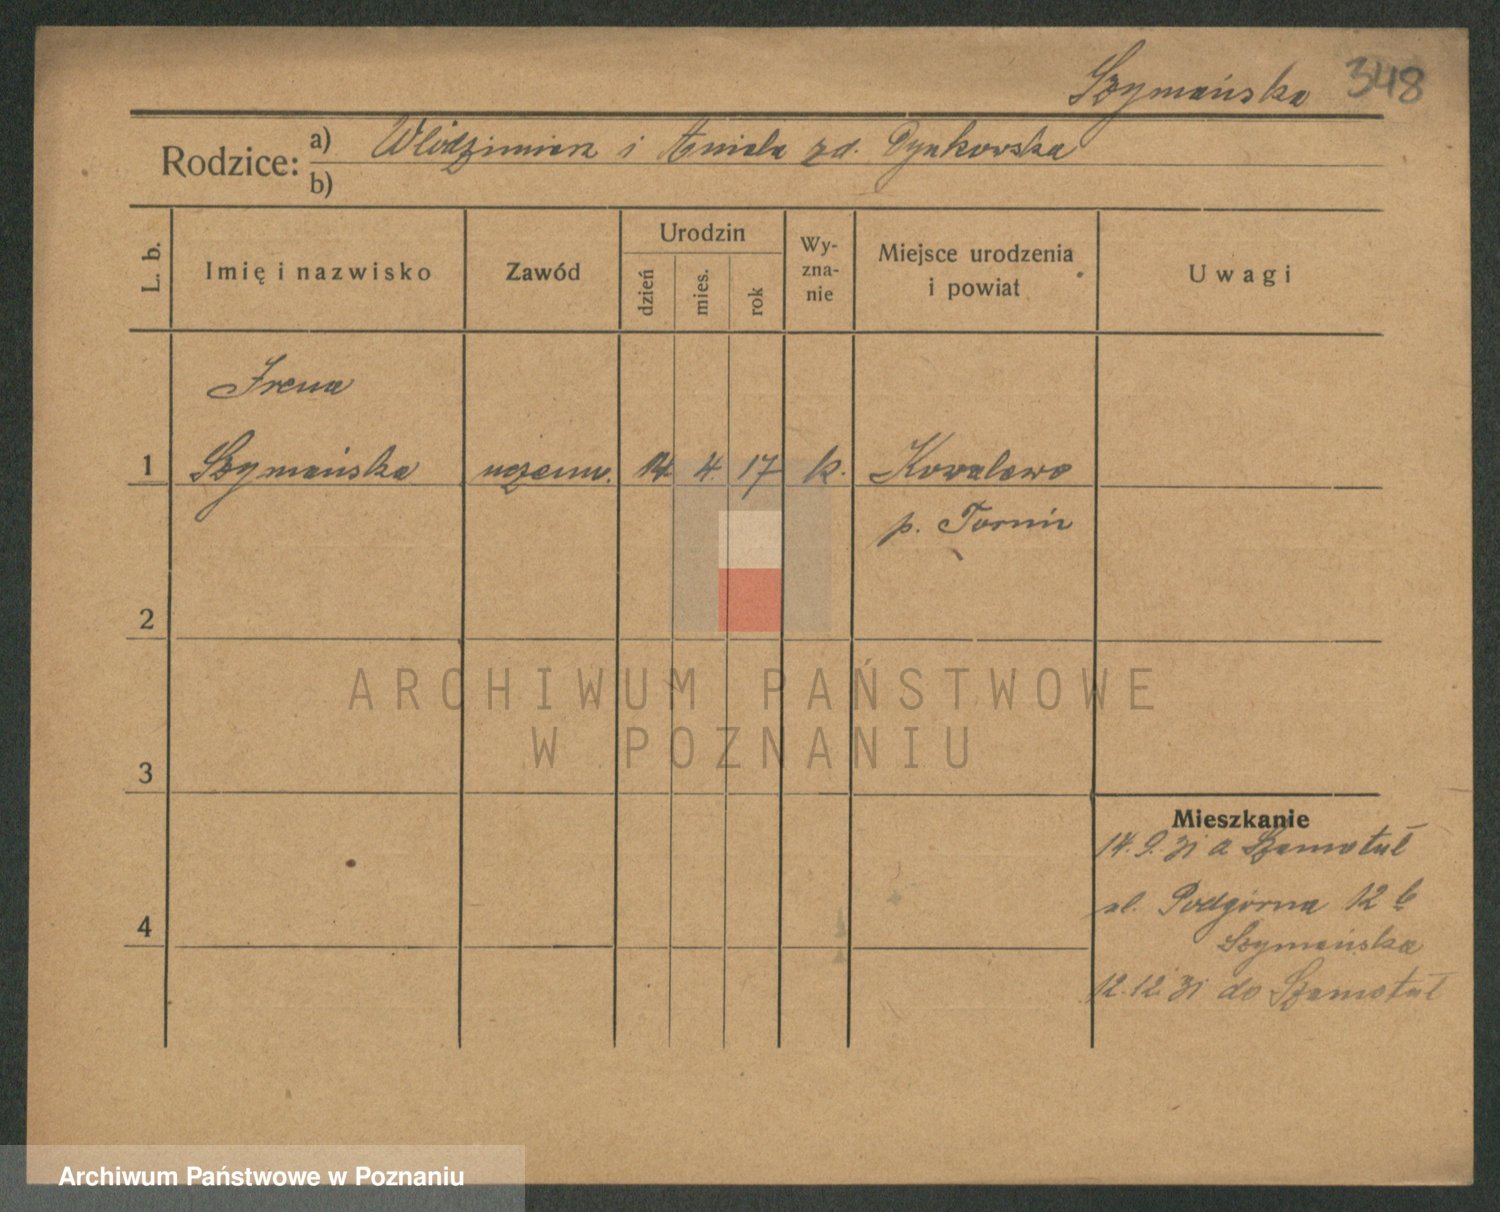 Szymańska 348
Rodzice: a) Włodzimierz i Aniela zd. Dynkowska
b)
L. b. Imię i nazwisko Zawód Urodzin dzień mies. rok Wy-zna-nie Miejsce urodzenia i powiat Uwagi
Irena
1 Szymańska uczenn. 14 4. 17 k. Kowalewo
p. Toruń
2
ARCHIWUM PAŃSTWOWE
W POZNANIU
3
Mieszkanie
14.9.31 a Szamotuł
4 ul. Podgórna 12 b
Szymańska
12.12.31 do Szamotuł
Archiwum Państwowe w Poznaniu